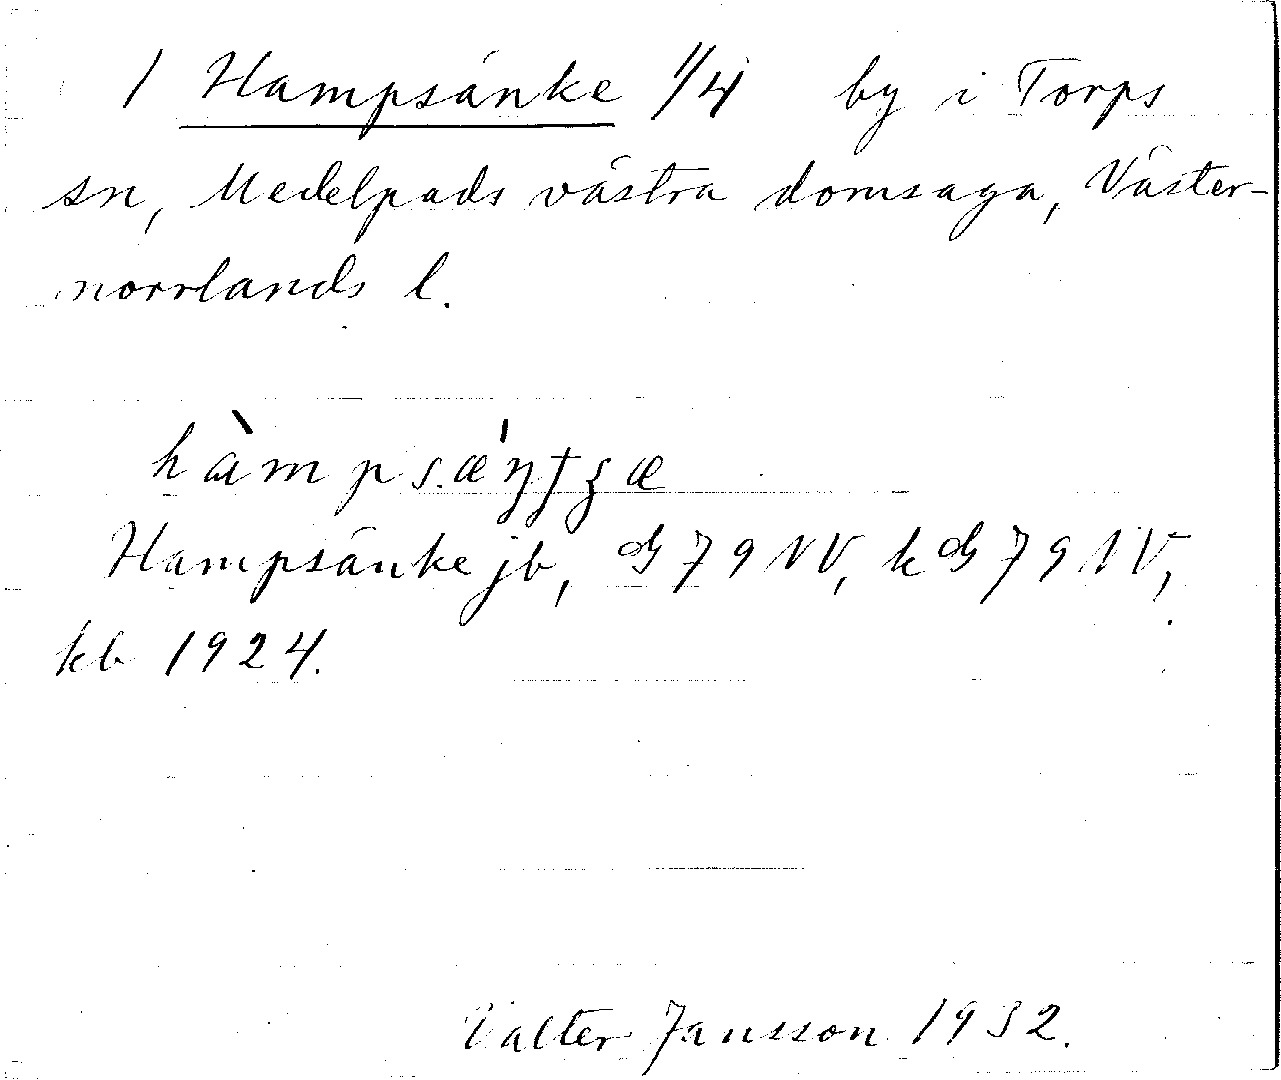 1 Hampsänke 1/4 by i Torps
sn, Medelpads västra domsaga, Väster-
norrlands l.
Hampsänke jb, G 79 NV, kG 79 NV,
kb 1924.
Valter Jansson 1932.